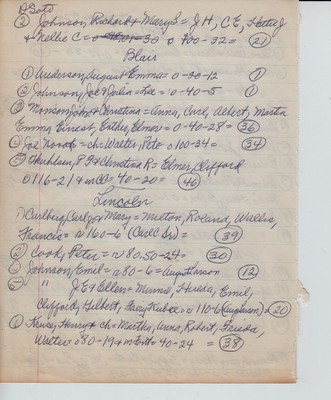 DeSoto
② Johnson, Richard & Mary S = J H, C E, Hattie J
& Nellie C = o 400-32 = ㉑
Blair
① Anderson, August Emma = 0-80-12 ①
② Johnson, Joe & Julia = Lee = 0-40-5 ①
③ Monson, John & Christina = Anna, Carl, Albert, Martin
Emma, Ernest, Esther, Elmer = 0-40-28 = ㊱
① Joe = ch = Walter, Pete = 0 100-34 = ㉞
② P & Christina R = Elmer, Clifford
0116-21 & 40-20 = ㊵
Lincoln
① Carlberg, Carl, & Mary = Milton, Roland, Wallis,
Francis = r 160-6 (Carl C Sr) = ㊴
② Cook, Peter = r 80.50-24 = ㉚
⑥ Johnson, Emil = r 80-6 = ⑫
⑤ " J E & Ellen = Minnie, Hulda, Emil,
Clifford, Gilbert, = 0 110-6 = ⑳
① Kruse, Henry & ch = Martha, Anna, Robert, Frieda,
Walter = 0 80-19 & 40-24 = ㊳